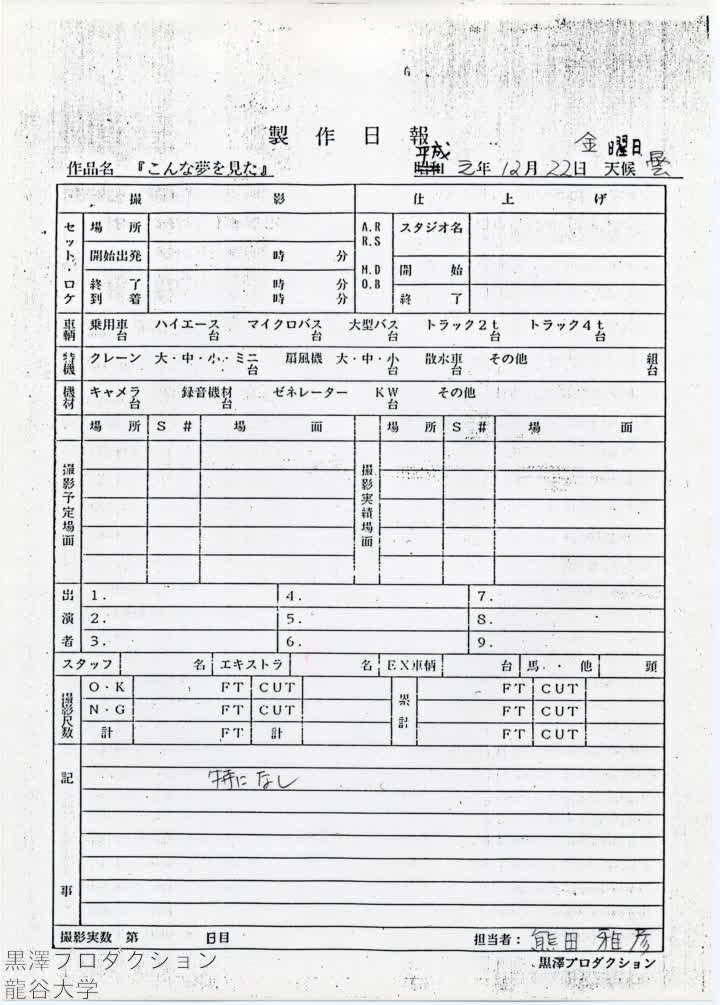 製作日報
作品名 『こんな夢を見た』 平成 昭和 元年 12月 22日 金曜日 天候 曇
撮影 仕上げ
セット・ロケ 場所 A.R R.S スタジオ名
開始出発 時 分 M.D O.B 開始
終了 時 分 終了
到着 時 分
車輌 乗用車 台 ハイエース 台 マイクロバス 台 大型バス 台 トラック2t 台 トラック4t 台
特機 クレーン 大・中・小・ミニ 台 扇風機 大・中・小 台 散水車 台 その他 組 台
機材 キャメラ 台 録音機材 台 ゼネレーター KW 台 その他
場所 S# 場面 場所 S# 場面
撮影予定場面 撮影実績場面
出演者 1. 4. 7.
2. 5. 8.
3. 6. 9.
スタッフ 名 エキストラ 名 EX車輌 台 馬・他 頭
撮影尺数 O・K FT CUT 累計 FT CUT
N・G FT CUT FT CUT
計 FT 計 FT CUT
記事
特になし
撮影実数 第 日目 担当者: 熊田雅彦
黒澤プロダクション
黒澤プロダクション
龍谷大学